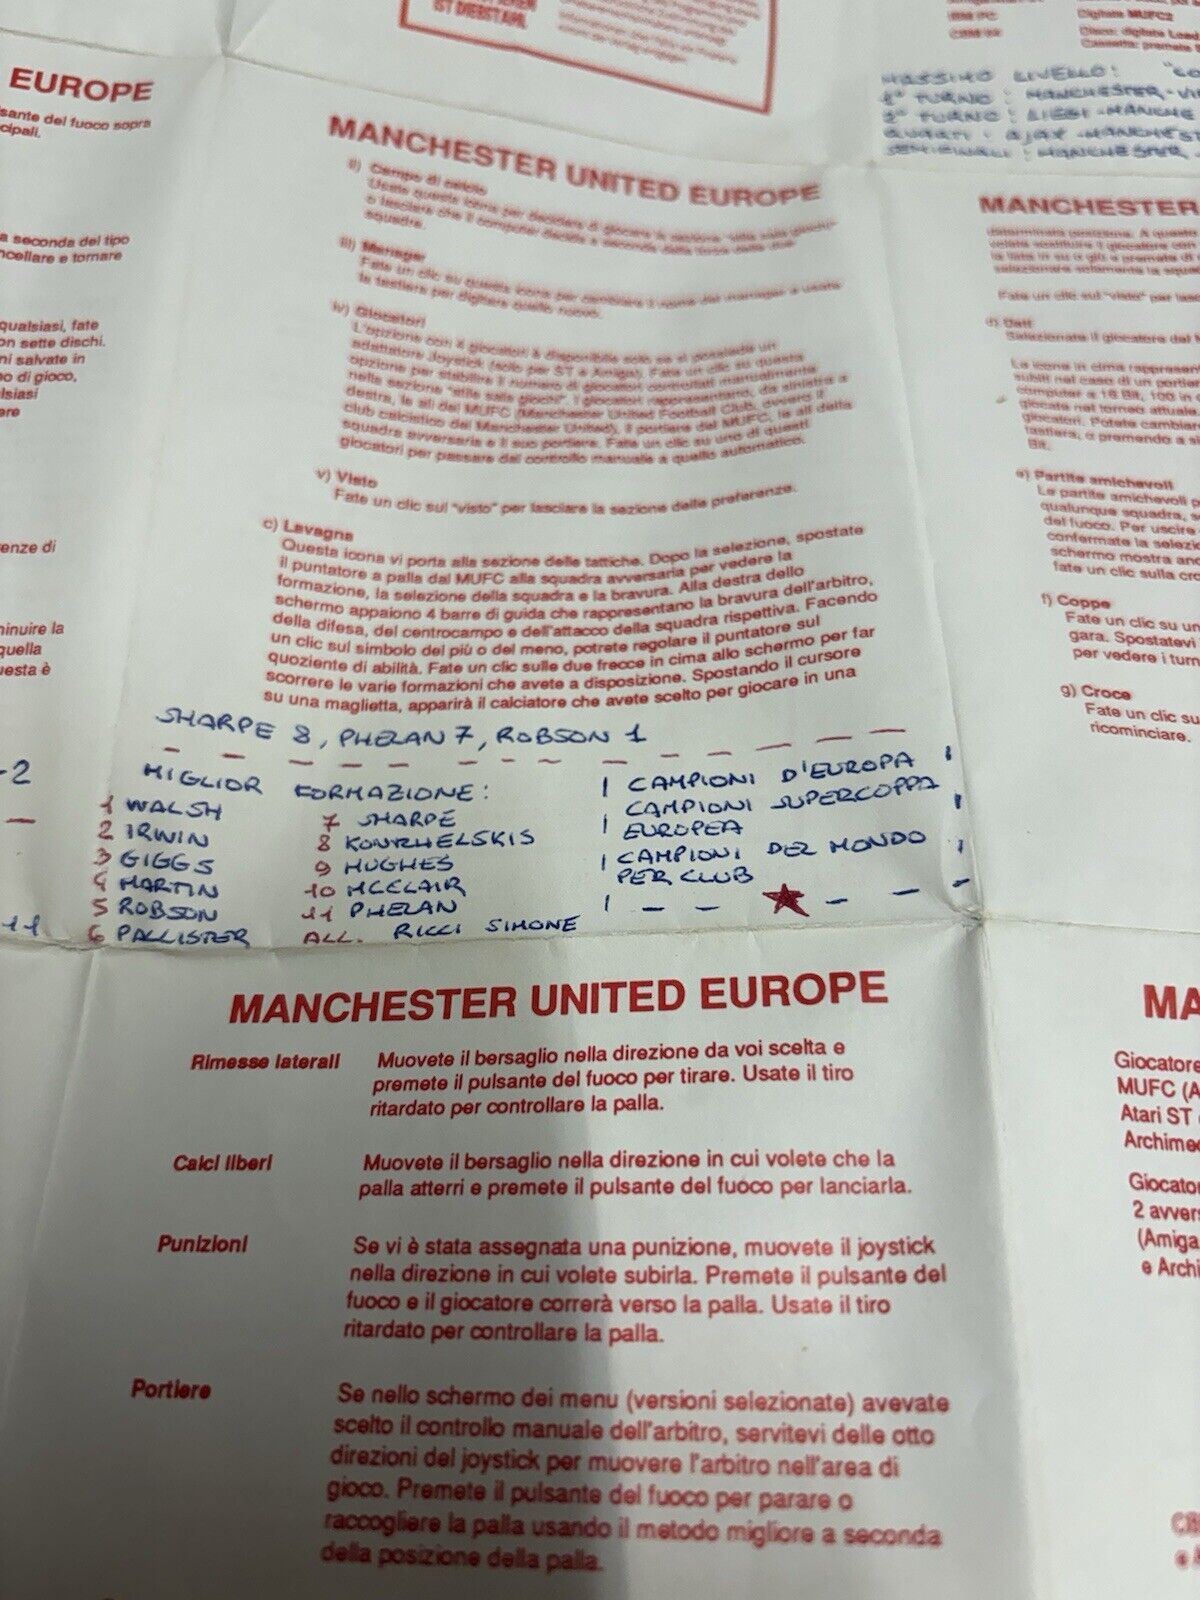 IST DIEBSTAHL
IBM PC
CBM 64
Digitate MUFC2
MASSIMO LIVELLO:
1° TURNO: MANCHESTER-
2° TURNO:
QUARTI: AJAX-MANCHEST
SEMIFINALI: MANCHESTER-
EUROPE
sante del fuoco sopra
cipali.
a seconda del tipo
ncellare e tornare
qualsiasi, fate
on sette dischi.
ni salvate in
no di gioco,
lsiasi
ere
enze di
inuire la
quella
uesta è
-2
11
MANCHESTER UNITED EUROPE
ii) Campo di calcio
Usate questa icona per decidere di giocare la sezione "stile sala giochi"
o lasciare che il computer decida a seconda della forza della
squadra.
iii) Manager
Fate un clic su questa icona per cambiare il nome del manager e usate
la tastiera per digitare quello nuovo.
iv) Giocatori
L'opzione con 4 giocatori è disponibile solo se si possiede un
adattatore Joystick (solo per ST e Amiga). Fate un clic su questa
opzione per stabilire il numero di giocatori controllati manualmente
nella sezione "stile sala giochi". I giocatori rappresentano, da sinistra a
destra, le ali del MUFC (Manchester United Football Club, ovvero il
club calcistico del Manchester United), il portiere del MUFC, le ali della
squadra avversaria e il suo portiere. Fate un clic su uno di questi
giocatori per passare dal controllo manuale a quello automatico.
v) Visto
Fate un clic sul "visto" per lasciare la sezione delle preferenze.
c) Lavagna
Questa icona vi porta alla sezione delle tattiche. Dopo la selezione, spostate
il puntatore a palla dal MUFC alla squadra avversaria per vedere la
formazione, la selezione della squadra e la bravura. Alla destra dello
schermo appaiono 4 barre di guida che rappresentano la bravura dell'arbitro,
della difesa, del centrocampo e dell'attacco della squadra rispettiva. Facendo
un clic sul simbolo del più o del meno, potrete regolare il puntatore sul
quoziente di abilità. Fate un clic sulle due frecce in cima allo schermo per far
scorrere le varie formazioni che avete a disposizione. Spostando il cursore
su una maglietta, apparirà il calciatore che avete scelto per giocare in una
SHARPE 8, PHELAN 7, ROBSON 1
MIGLIOR FORMAZIONE:
1 WALSH
2 IRWIN
3 GIGGS
4 MARTIN
5 ROBSON
6 PALLISTER
7 SHARPE
8 KONRHELSKIS
9 HUGHES
10 MCCLAIR
11 PHELAN
ALL. RICCI SIMONE
CAMPIONI D'EUROPA
CAMPIONI SUPERCOPPA
EUROPEA
CAMPIONI DEL MONDO
PER CLUB
MANCHESTER
determinata posizione. A questo
Fate un clic sul "visto" per
d) Dati
Selezionate il giocatore del
La icona in cima
subiti nel caso di un portiere
computer a 16 Bit, 100 in
giocate nel torneo attuale
giocatori. Potete cambiare
tastiera, o premendo a
Bit.
e) Partite amichevoli
Le partite amichevoli
qualunque squadra,
del fuoco. Per uscire
confermate la selezi
schermo mostra anc
fate un clic sulla cro
f) Coppe
Fate un clic su un
gara. Spostatevi
per vedere i turn
g) Croce
Fate un clic su
ricominciare.
MANCHESTER UNITED EUROPE
Rimesse laterali Muovete il bersaglio nella direzione da voi scelta e
premete il pulsante del fuoco per tirare. Usate il tiro
ritardato per controllare la palla.
Calci liberi Muovete il bersaglio nella direzione in cui volete che la
palla atterri e premete il pulsante del fuoco per lanciarla.
Punizioni Se vi è stata assegnata una punizione, muovete il joystick
nella direzione in cui volete subirla. Premete il pulsante del
fuoco e il giocatore correrà verso la palla. Usate il tiro
ritardato per controllare la palla.
Portiere Se nello schermo dei menu (versioni selezionate) avevate
scelto il controllo manuale dell'arbitro, servitevi delle otto
direzioni del joystick per muovere l'arbitro nell'area di
gioco. Premete il pulsante del fuoco per parare o
raccogliere la palla usando il metodo migliore a seconda
della posizione della palla.
MA
Giocatore
MUFC (A
Atari ST
Archimed
Giocator
2 avvers
(Amiga
e Archi